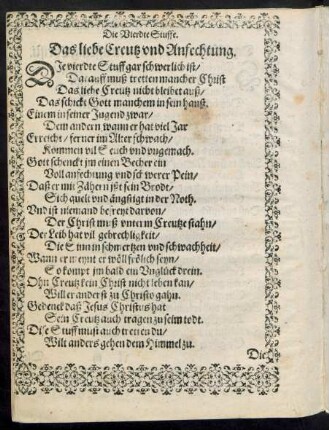 Die Vierdte Stuffe.
Das liebe Creutz vnd Anfechtung.
DJe vierdte Stuff gar schwerlich ist/
Darauff muß tretten mancher Christ
Das liebe Creutz nicht bleibet auß/
Das schickt Gott manchem in sein hauß.
Einem in seiner Jugend zwar/
Dem andern wann er hat viel Jar
Erreicht/ ferner im Alter schwach/
Kommen vil Seuch vnd vngemach.
Gott schenckt jm einen Becher ein
Voll anfechtung vnd schwerer Pein/
Daß er mit Zähern jßt sein Brodt/
Sich quelt vnd ängstigt in der Noth.
Vnd ist niemand befreyt darvon/
Der Christ muß vnterm Creutze stahn/
Der Leib hat vil gebrechligkeit/
Die Sinn in schmertzen vnd schwachheit/
Wann er meynt er wöll frölich seyn/
So kompt jm bald ein Vnglück drein.
Ohn Creutz kein Christ nicht leben kan/
Will er anderst zu Christo gahn.
Gedenck daß Jesus Christus hat
Sein Creutz auch tragen zu seim todt.
Dise Stuff must auch tretten du/
Wilt anders gehen dem Himmel zu.
Die